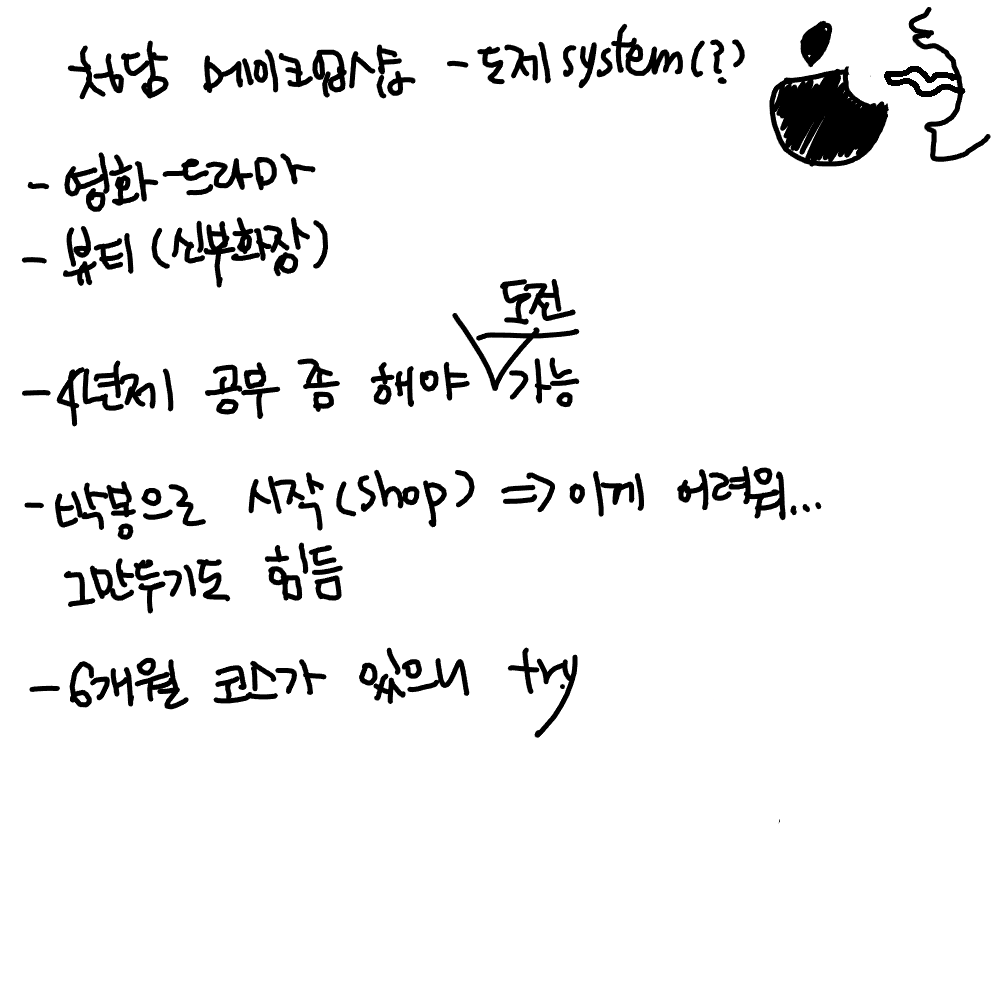 청담 메이크업샵 - 도제 system(?)
- 영화-드라마
- 뷰티 (신부화장)
도전
- 4년제 공부 좀 해야 가능
- 박봉으로 시작(shop) => 이게 어려워...
그만두기도 힘듬
- 6개월 코스가 있으니 try